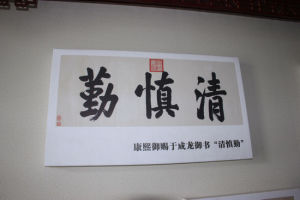 清慎勤
康熙御赐于成龙御书“清慎勤”